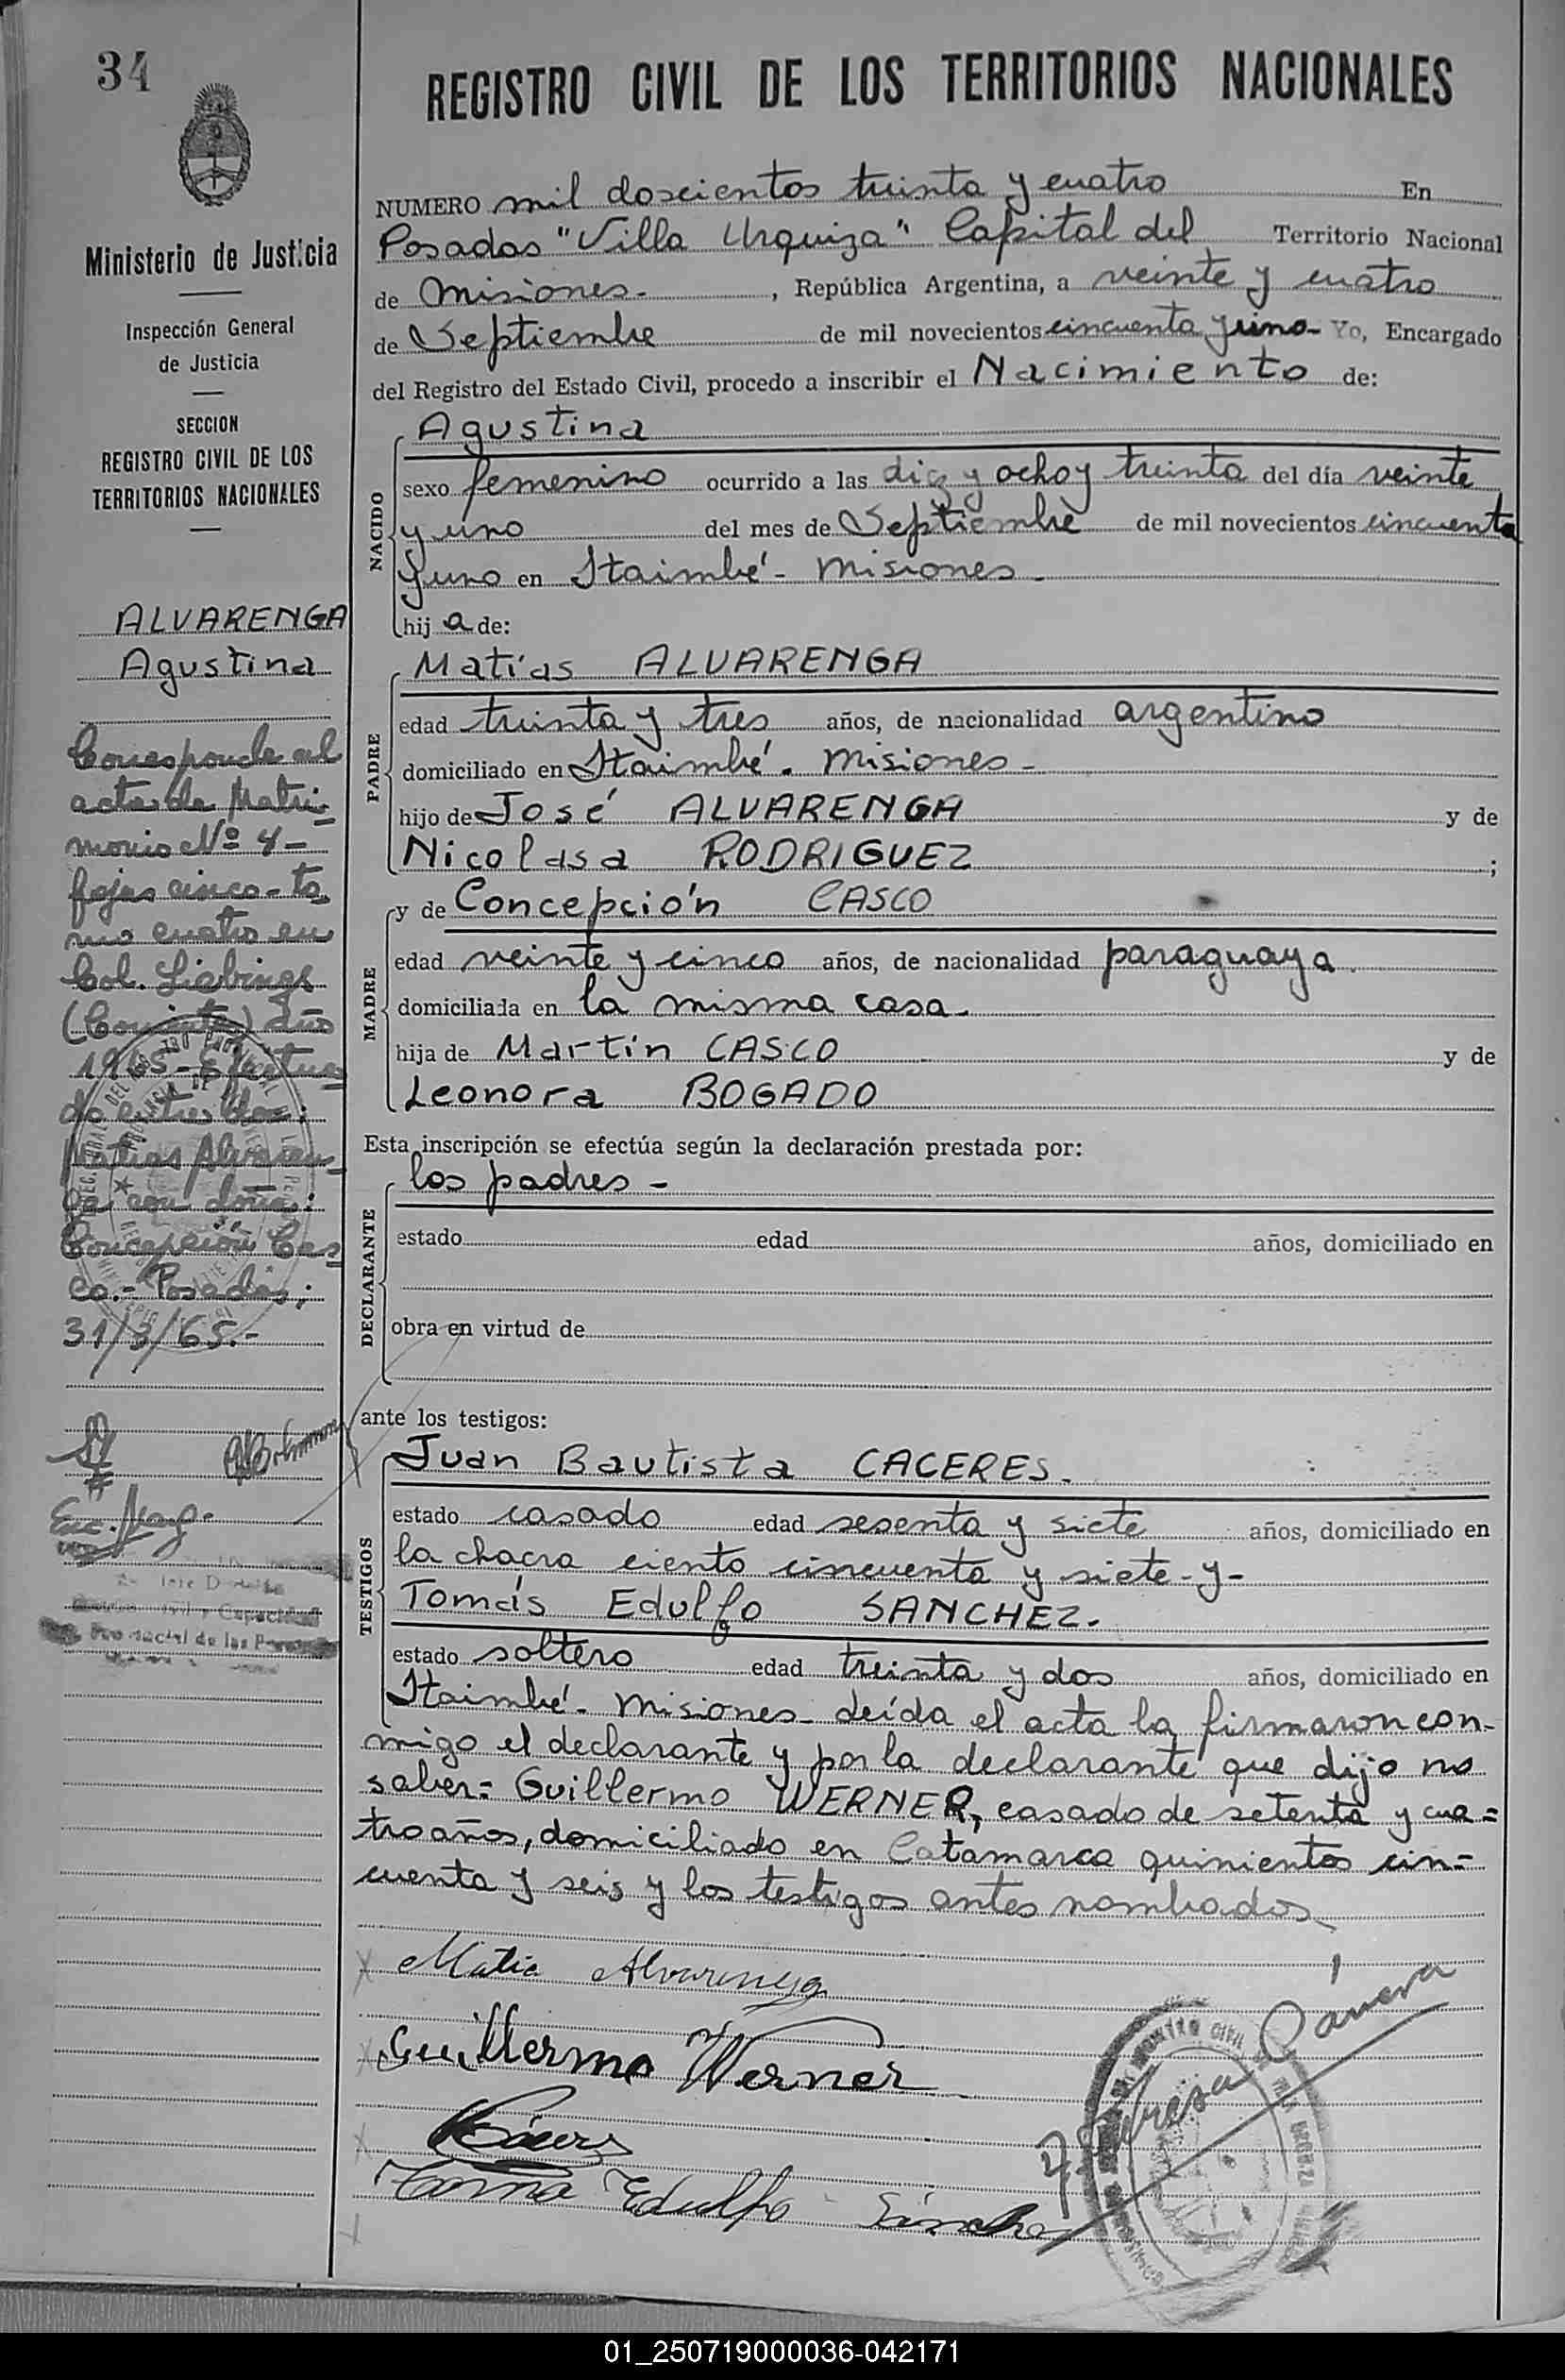 34
REGISTRO CIVIL DE LOS TERRITORIOS NACIONALES
Ministerio de Justicia
Inspección General
de Justicia
SECCION
REGISTRO CIVIL DE LOS
TERRITORIOS NACIONALES
ALVARENGA
Agustina
Corresponde al
acta de Matri-
monio Nº 4-
fojas cinco-to-
mo cuatro en
Col. Liebings
(Corrientes) año
1965- Efectua
do entre don:
Matias Alvaren-
ga con doña:
Concepción Cas
co.- Posadas;
31/3/65.-
NUMERO mil doscientos treinta y cuatro En
Posadas "Villa Urquiza" Capital del Territorio Nacional
de Misiones- , República Argentina, a veinte y cuatro
de Septiembre de mil novecientos cincuenta y uno- Yo, Encargado
del Registro del Estado Civil, procedo a inscribir el Nacimiento de:
NACIDO
Agustina
sexo femenino ocurrido a las diez y ocho y treinta del día veinte
y uno del mes de Septiembre de mil novecientos cincuenta
y uno en Itaimbé- Misiones-
hij a de:
PADRE
Matías ALVARENGA
edad treinta y tres años, de nacionalidad argentino
domiciliado en Itaimbé- Misiones-
hijo de José ALVARENGA y de
Nicolasa RODRIGUEZ ;
MADRE
y de Concepción CASCO
edad veinte y cinco años, de nacionalidad paraguaya.
domiciliada en la misma casa-
hija de Martín CASCO y de
Leonora BOGADO
Esta inscripción se efectúa según la declaración prestada por:
DECLARANTE
los padres-
estado edad años, domiciliado en
obra en virtud de
ante los testigos:
TESTIGOS
Juan Bautista CACERES.
estado casado edad sesenta y siete años, domiciliado en
la chacra ciento cincuenta y siete-y-
Tomás Edulfo SANCHEZ.
estado soltero edad treinta y dos años, domiciliado en
Itaimbé- Misiones- Leída el acta la firmaron con-
migo el declarante y por la declarante que dijo no
saber: Guillermo WERNER, casado de setenta y cua=
tro años, domiciliado en Catamarca quinientos cin=
cuenta y seis y los testigos antes nombrados
Matia Alvarenga
Guillermo Werner
Toma Edulfo Sanchez
01_250719000036-042171